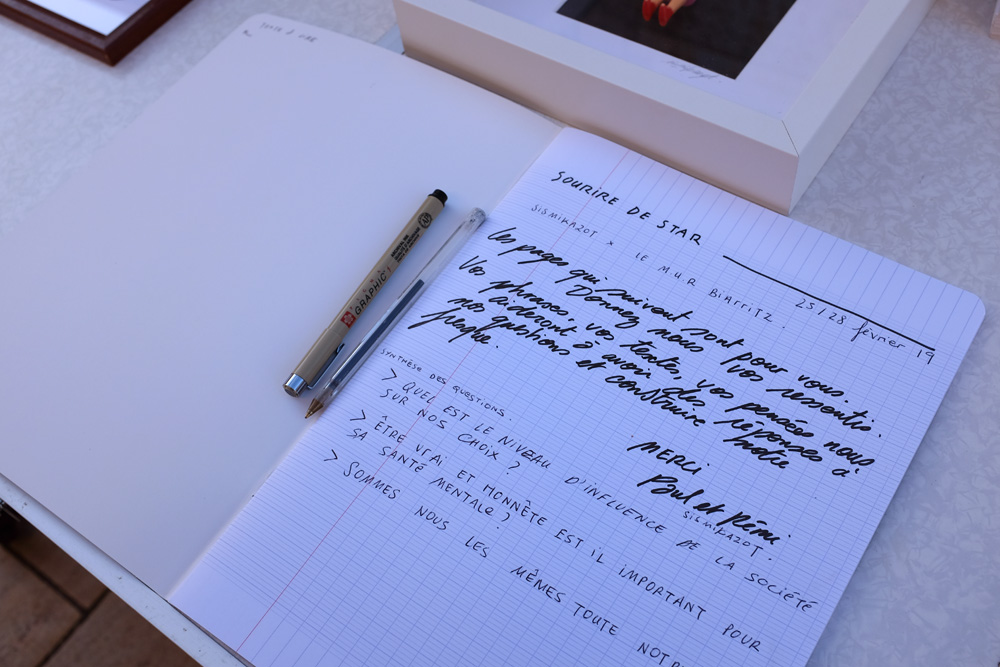 TEXTE À LIRE
GRAPHIC 1
SOURIRE DE STAR
SISMIKAZOT x LE M.U.R BIARRITZ.
25/28 février 19
les pages qui suivent sont pour vous.
Donnez nous vos ressentis.
Vos phrases, vos textes, vos pensées nous
aideront à avoir des réponses à
nos questions et construire notre
fresque.
MERCI
Paul et Rémi
SISMIKAZOT.
SYNTHÈSE DES QUESTIONS.
> QUEL EST LE NIVEAU D'INFLUENCE DE LA SOCIÉTÉ
SUR NOS CHOIX ?
> ÊTRE VRAI ET HONNÊTE EST IL IMPORTANT POUR
SA SANTÉ MENTALE ?
> SOMMES NOUS LES MÊMES TOUTE NOTRE